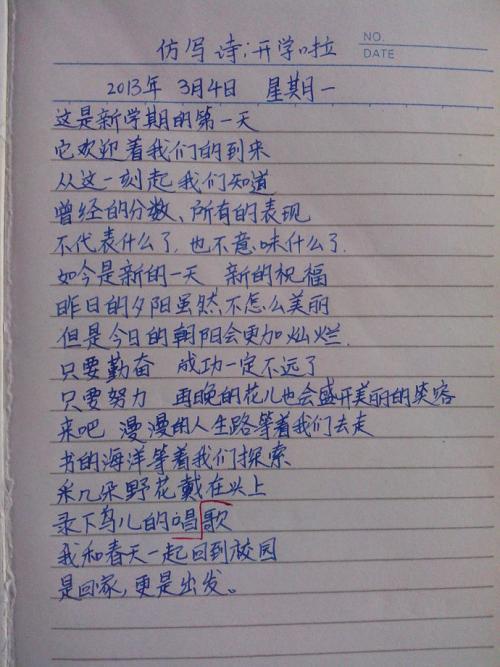 NO.
DATE
仿写诗:开学啦
2013年 3月4日 星期一
这是新学期的第一天
它欢迎着我们的到来
从这一刻起我们知道
曾经的分数、所有的表现
不代表什么了,也不意味什么了.
如今是新的一天 新的祝福
昨日的夕阳虽然不怎么美丽
但是今日的朝阳会更加灿烂.
只要勤奋 成功一定不远了
只要努力 再晚的花儿也会盛开美丽的笑容
来吧 漫漫的人生路等着我们去走
书的海洋等着我们探索
采几朵野花戴在头上
录下鸟儿的唱歌
我和春天一起回到校园
是回家,更是出发。